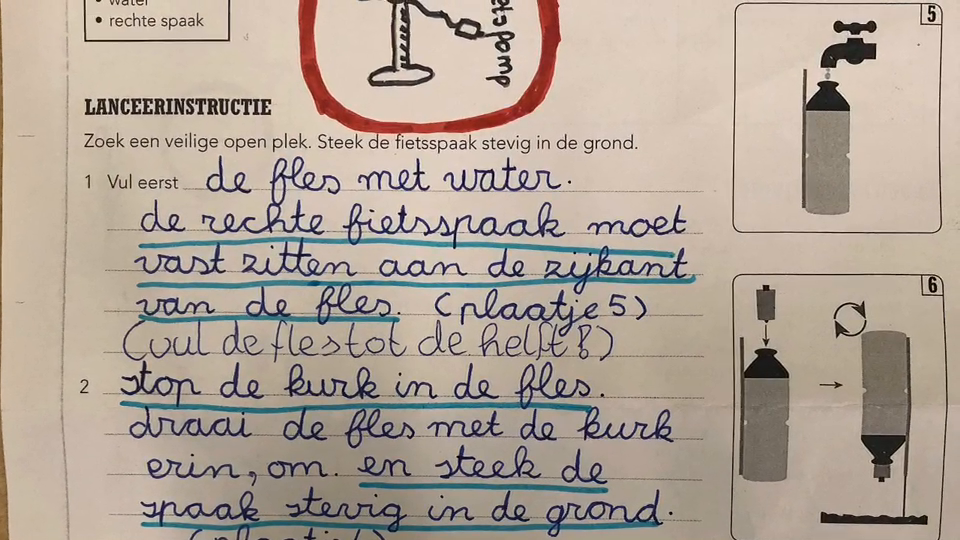 • water
• rechte spaak
fietspomp
LANCEERINSTRUCTIE
Zoek een veilige open plek. Steek de fietsspaak stevig in de grond.
1 Vul eerst de fles met water.
de rechte fietsspaak moet
vast zitten aan de zijkant
van de fles. (plaatje 5)
(vul de fles tot de helft!)
2 stop de kurk in de fles.
draai de fles met de kurk
erin, om. en steek de
spaak stevig in de grond.
5
6